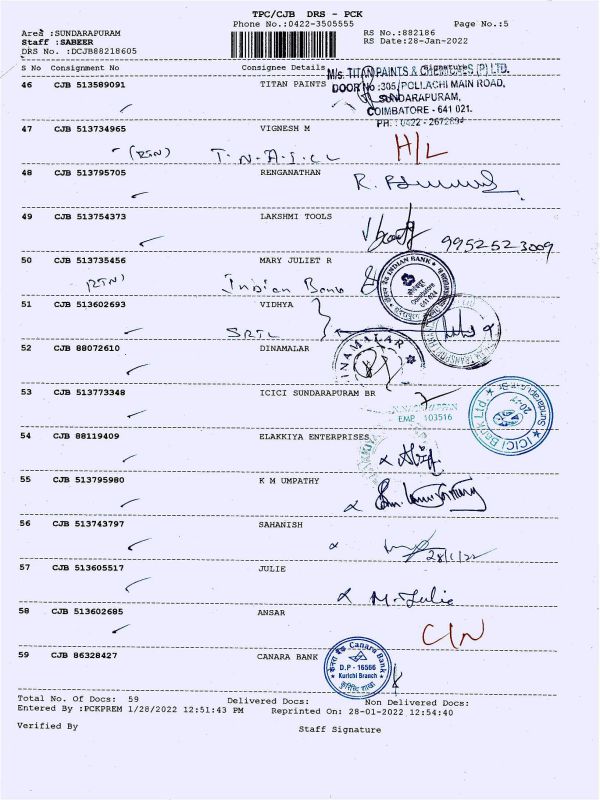 TPC/CJB DRS - PCK
Phone No.:0422-3505555 Page No.:5
Area :SUNDARAPURAM RS No.:882186
Staff :SABEER RS Date:28-Jan-2022
DRS No. :DCJB88218605
S No Consignment No Consignee Details Signature
M/s. TITAN PAINTS & CHEMICALS (P) LTD.
46 CJB 513589091 TITAN PAINTS
DOOR No :305/POLLACHI MAIN ROAD,
SUNDARAPURAM,
COIMBATORE - 641 021.
PH. : 0422 - 2672894
47 CJB 513734965 VIGNESH M
(RTN) T.N.A.I.CL H/L
48 CJB 513795705 RENGANATHAN
49 CJB 513754373 LAKSHMI TOOLS
9952523009
50 CJB 513735456 MARY JULIET R
INDIAN BANK
(RTN) Indian Bank
51 CJB 513602693 VIDHYA
SRTL
52 CJB 88072610 DINAMALAR
DINAMALAR
53 CJB 513773348 ICICI SUNDARAPURAM BR
EMP 103516
ICICI Bank Ltd.
54 CJB 88119409 ELAKKIYA ENTERPRISES
55 CJB 513795980 K M UMPATHY
56 CJB 513743797 SAHANISH
28/1/22
57 CJB 513605517 JULIE
M. Julie
58 CJB 513602685 ANSAR
C/N
59 CJB 86328427 CANARA BANK
केनरा बैंक Canara Bank
D.P - 16566
Kurichi Branch
Total No. Of Docs: 59 Delivered Docs: Non Delivered Docs:
Entered By :PCKPREM 1/28/2022 12:51:43 PM Reprinted On: 28-01-2022 12:54:40
Verified By Staff Signature